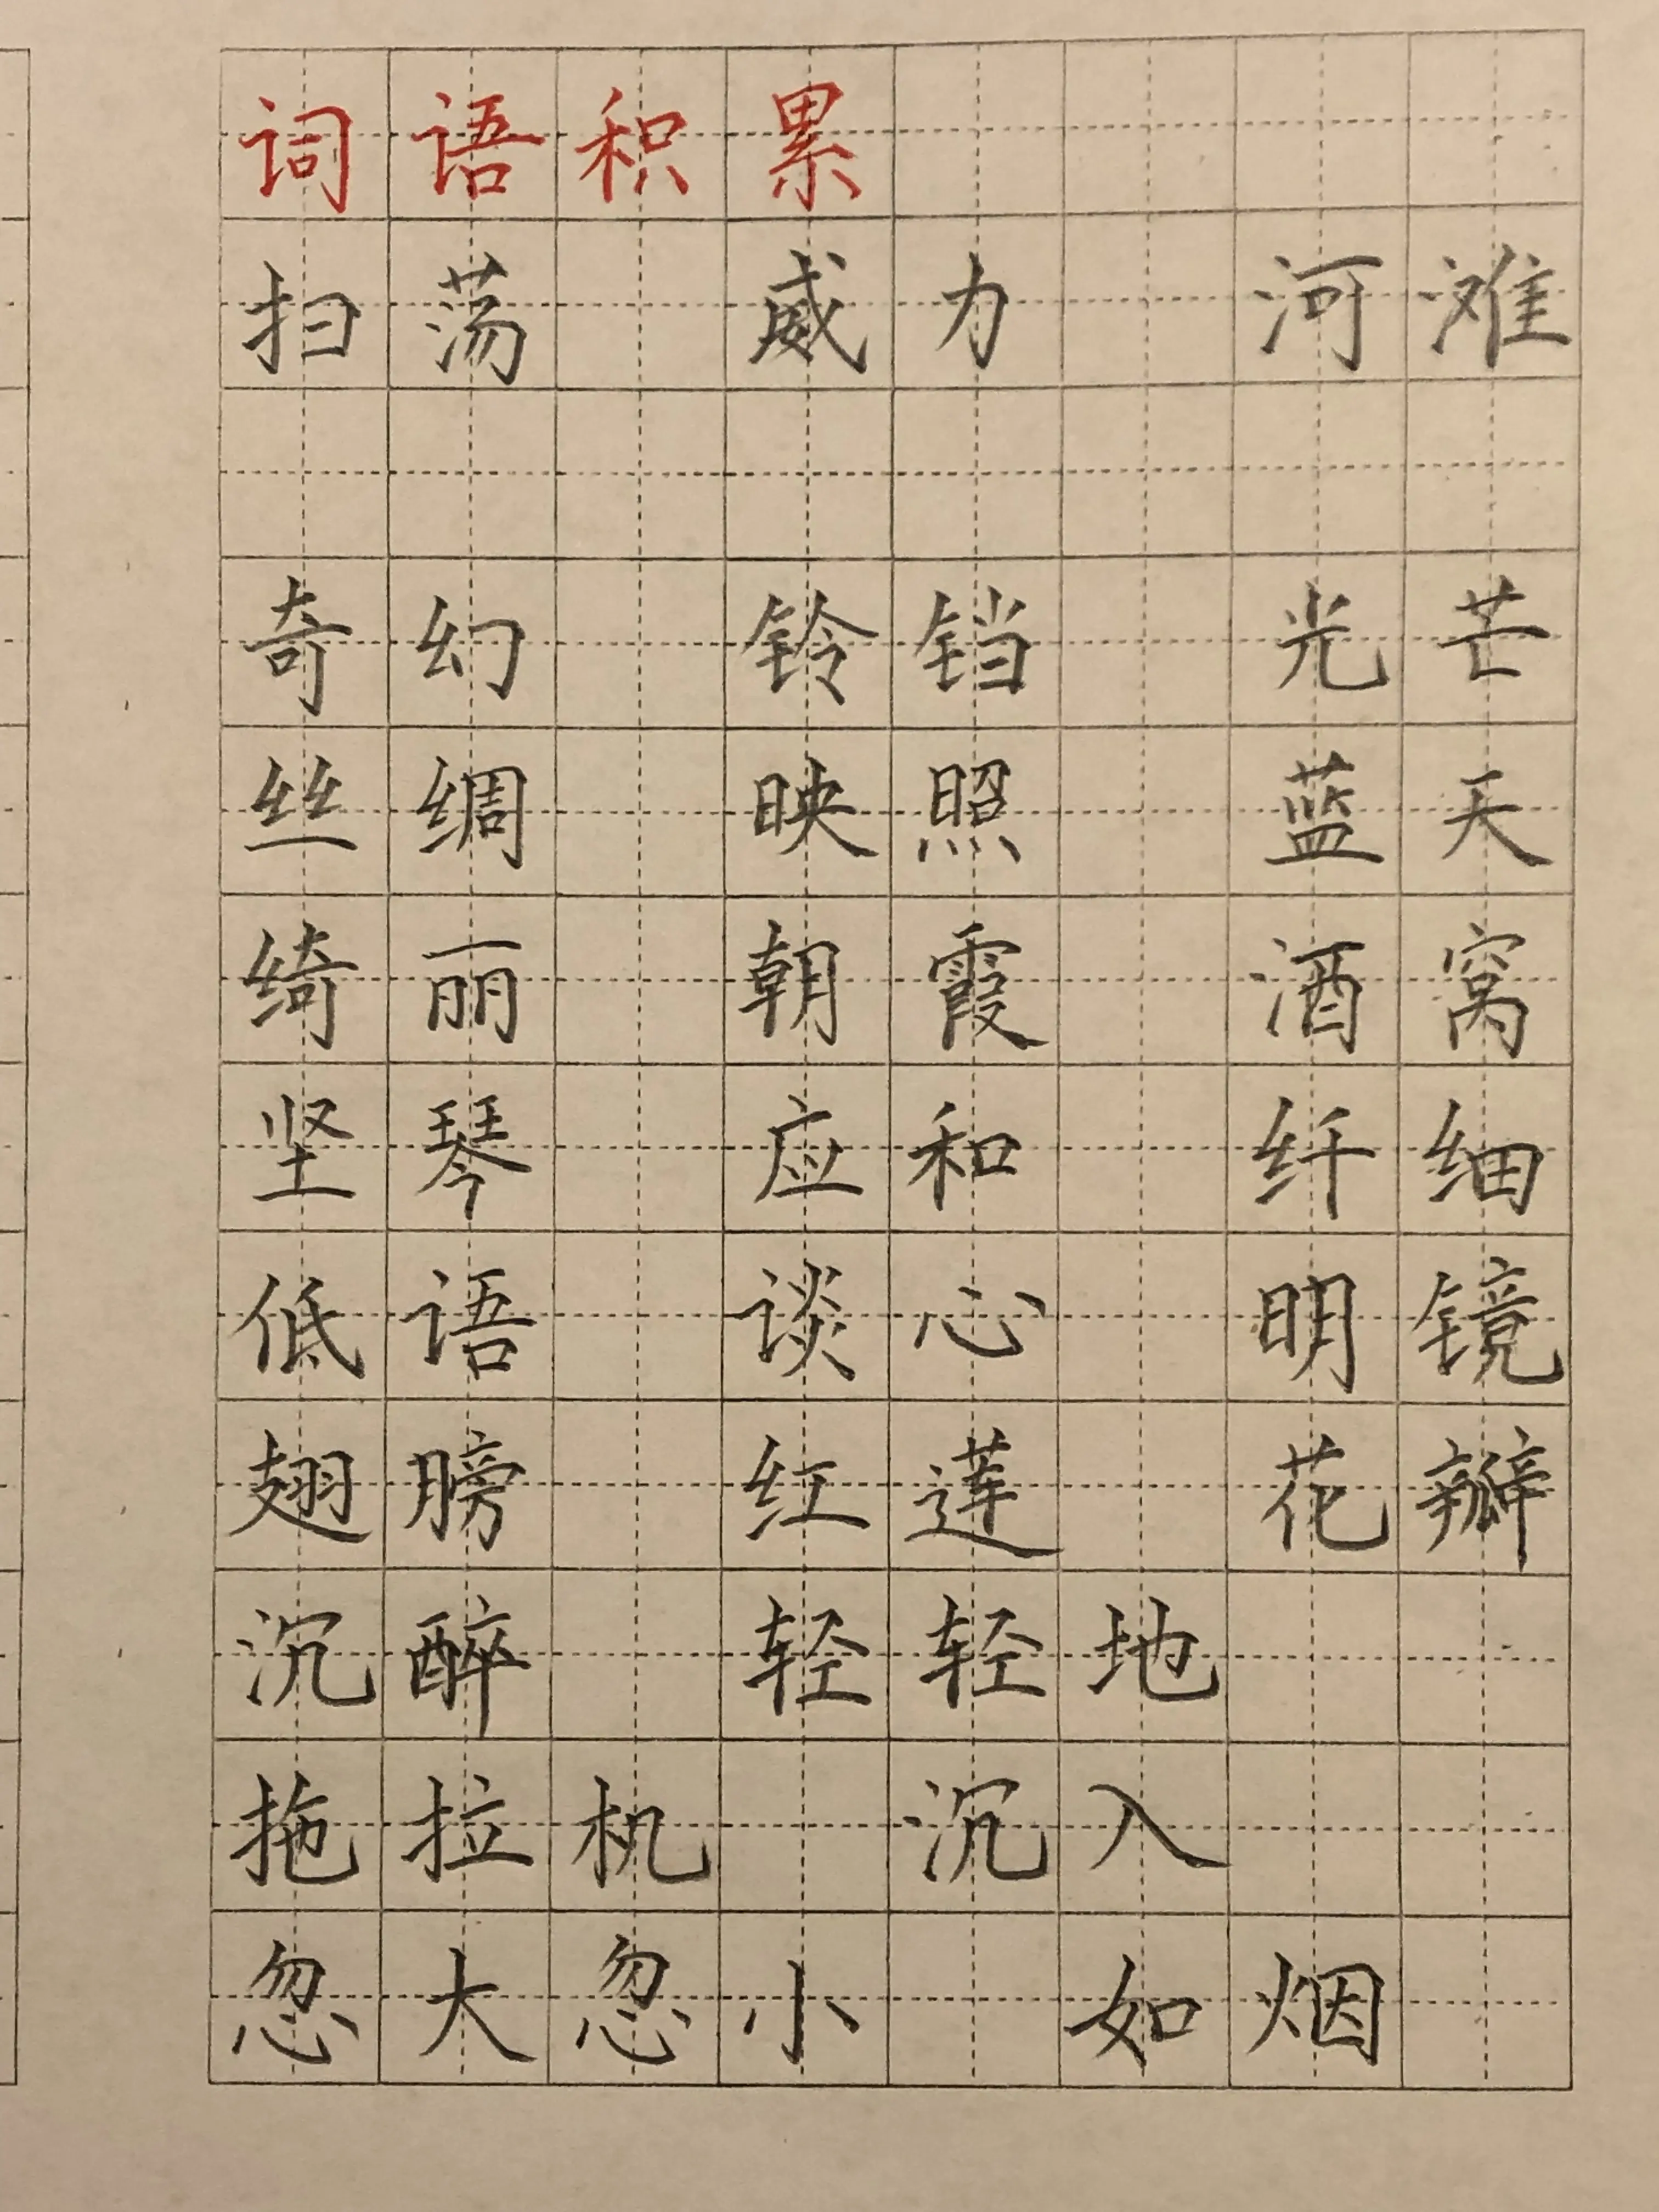 词语积累
扫荡 威力 河滩
奇幻 铃铛 光芒
丝绸 映照 蓝天
绮丽 朝霞 酒窝
坚琴 应和 纤细
低语 谈心 明镜
翅膀 红莲 花瓣
沉醉 轻轻地
拖拉机 沉入
忽大忽小 如烟